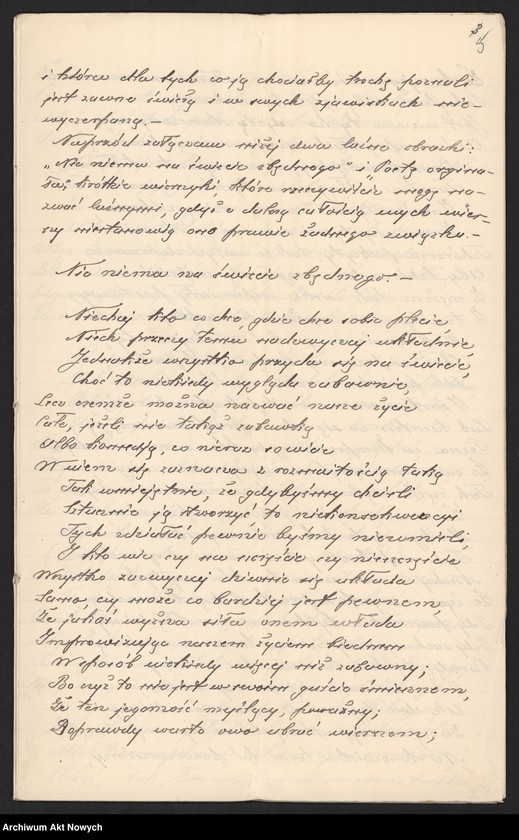 3
5
i która dla tych co ją chociażby trochę poznali
jest zawsze świeżą i w swych zjawiskach nie-
wyczerpaną. —
Naprzód załączam niżej dwa luźne obrazki:
„Nic niema na świecie zbędnego" i „Poeta orygina-
ta", krótkie wierszyki, które rzeczywiście mogę na-
zwać luźnymi, gdyż z dalszą całością mych wier-
szy niestanowią one prawie żadnego związku. —
Nic niema na świecie zbędnego. —
Niechaj kto co chce, gdzie chce sobie plecie,
Niech przeczy temu nadzwyczaj układnie,
Jednakże wszystko przyda się na świecie,
Choć to niekiedy wygląda zabawnie,
Lecz czemże można nazwać nasze życie
Całe, jeżeli nie takąż zabawką
Albo komedją, co nieraz sowicie
W niem się zaznacza z rozmaitością taką
Tak umiejętnie, że gdybyśmy chcieli
Sztucznie ją stworzyć, to niekonsekwencyi
Tych zdziałać pewnie byśmy nieumieli,
I kto wie czy na szczęście czy nieszczęście
Wszystko zazwyczaj dziwnie się układa
Samo czy może co bardziej jest pewnem
Że jakaś wyższa siła onem włada
Improwizując naszem życiem biednem
W sposób niekiedy więcej niż zabawny;
Bo czyż to nie jest w swoim guście śmiesznem,
Że ten jegomość myślący, poważny;
Doprawdy warto owo ubrać wierszem;
Archiwum Akt Nowych